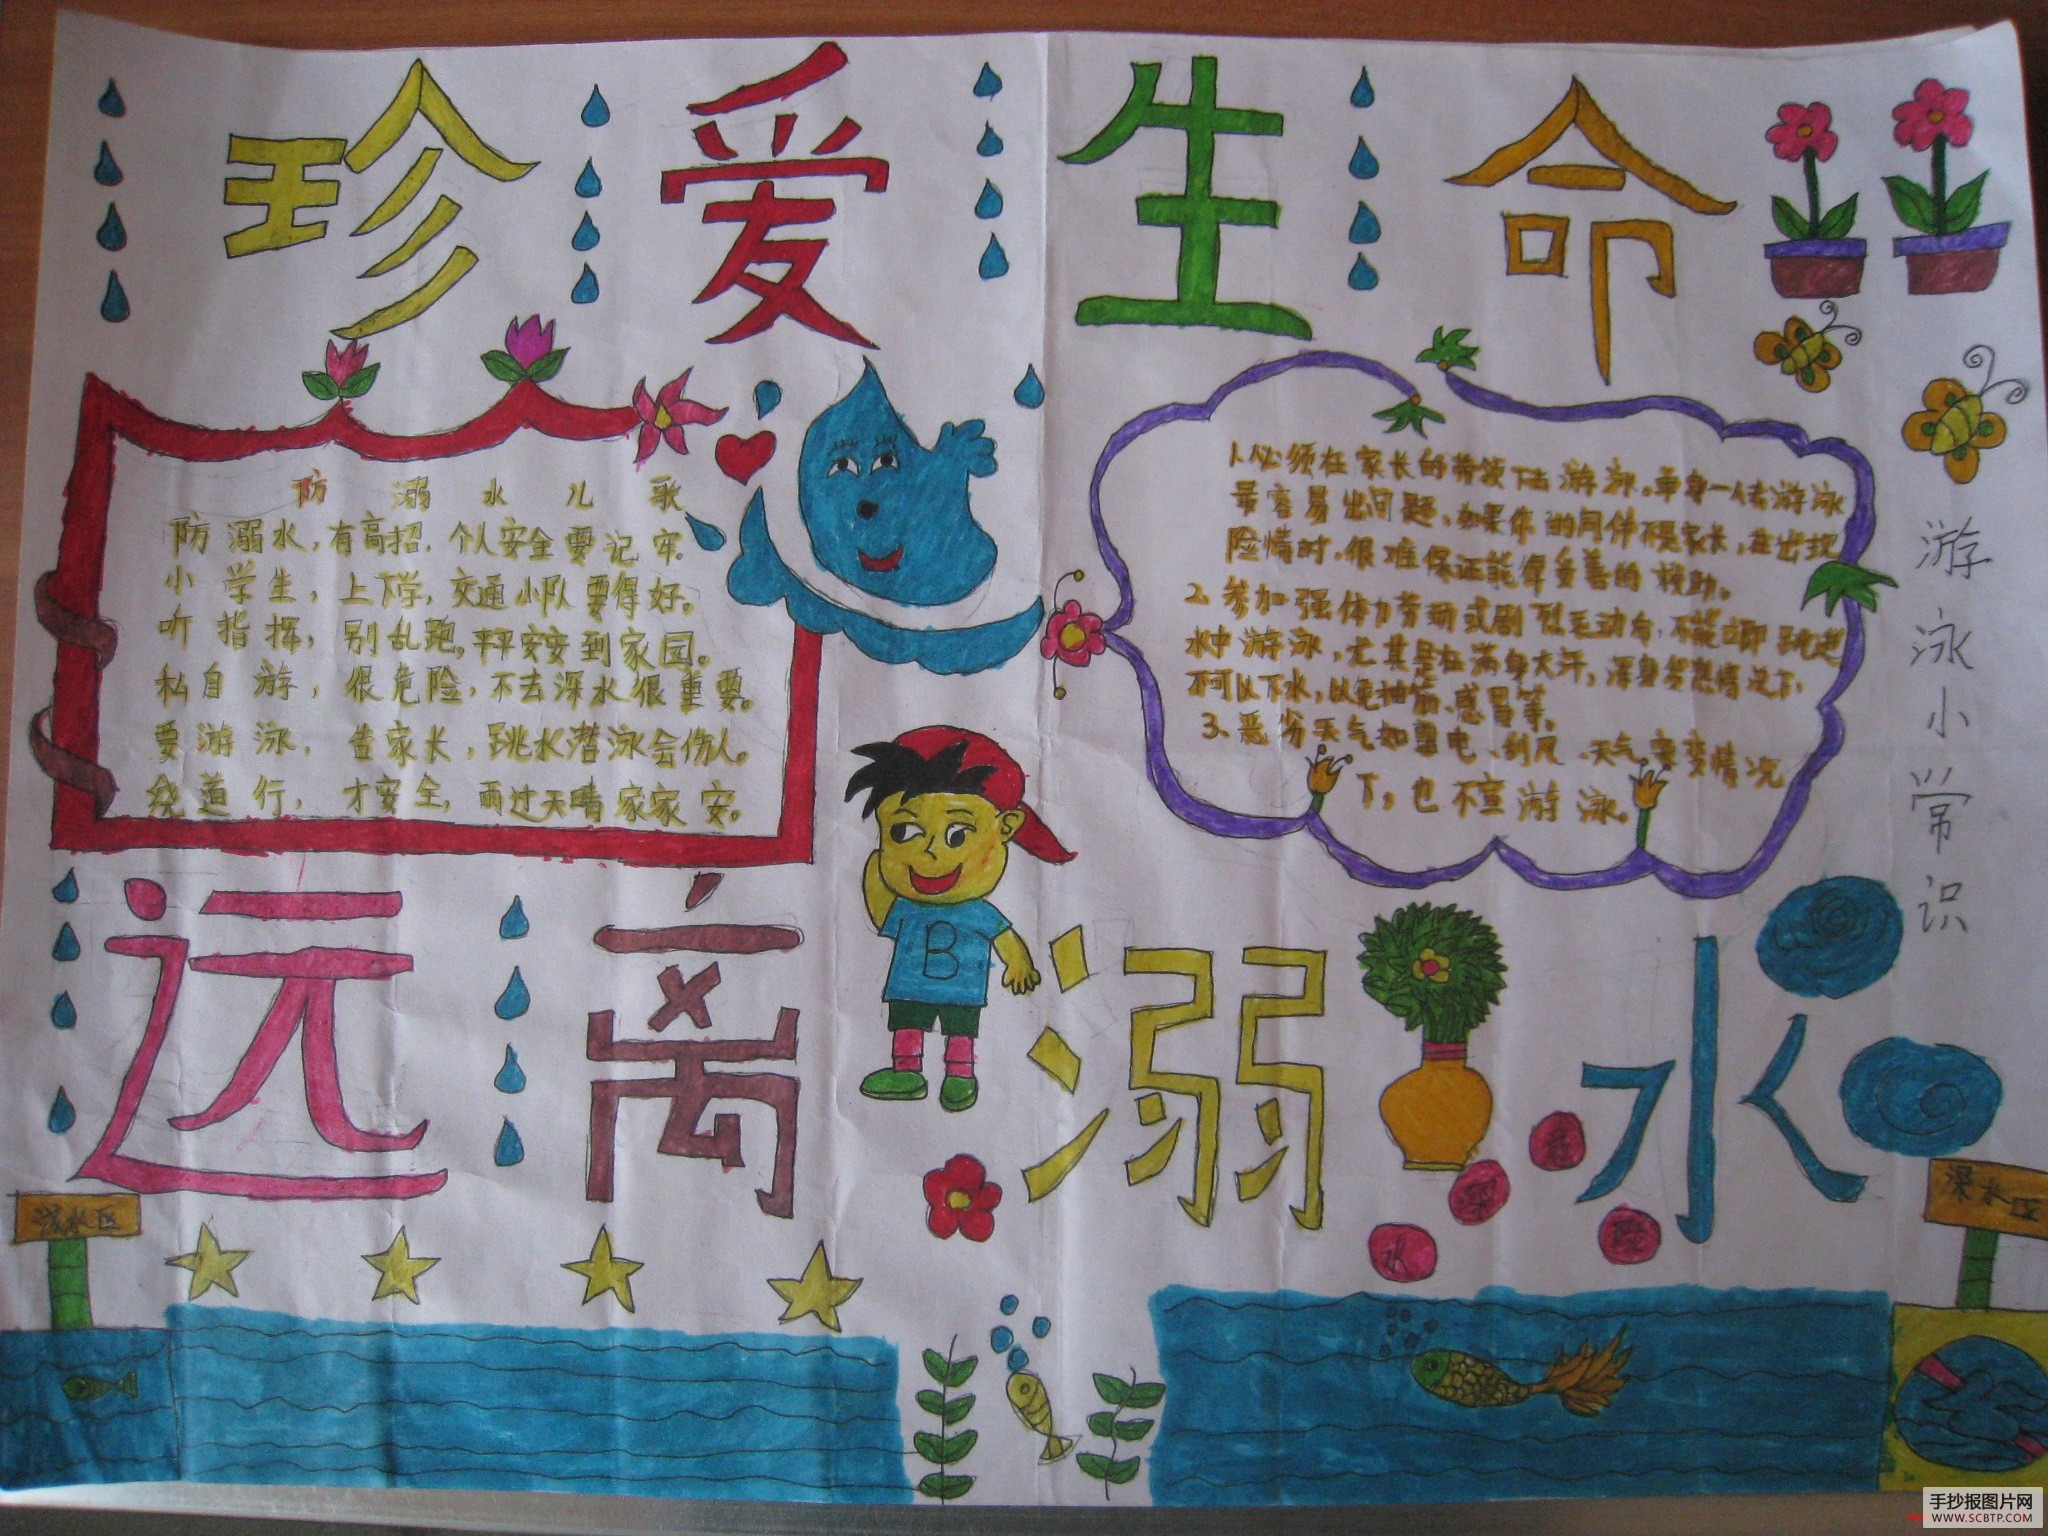 珍爱生命
防溺水儿歌
防溺水，有高招，个人安全要记牢。
小学生，上下学，交通小队要得好。
听指挥，别乱跑，平平安安到家园。
私自游，很危险，不去深水很重要。
要游泳，告家长，跳水潜泳会伤人。
绕道行，才安全，雨过天晴家家安。
1、必须在家长的带领下去游泳。单身一人去游泳
最容易出问题，如果你的同伴不是家长，在出现
险情时，很难保证能得到妥善的救助。
2、参加强体力劳动或剧烈运动后，不能立即跳进
水中游泳，尤其是在满身大汗，浑身发热情况下，
不可以下水，以免抽筋、感冒等。
3、恶劣天气如雷电、刮风、天气突变情况
下，也不宜游泳。
游泳小常识
远离溺水
B
深水区
水
深水区
手抄报图片网
WWW.SCBTP.COM